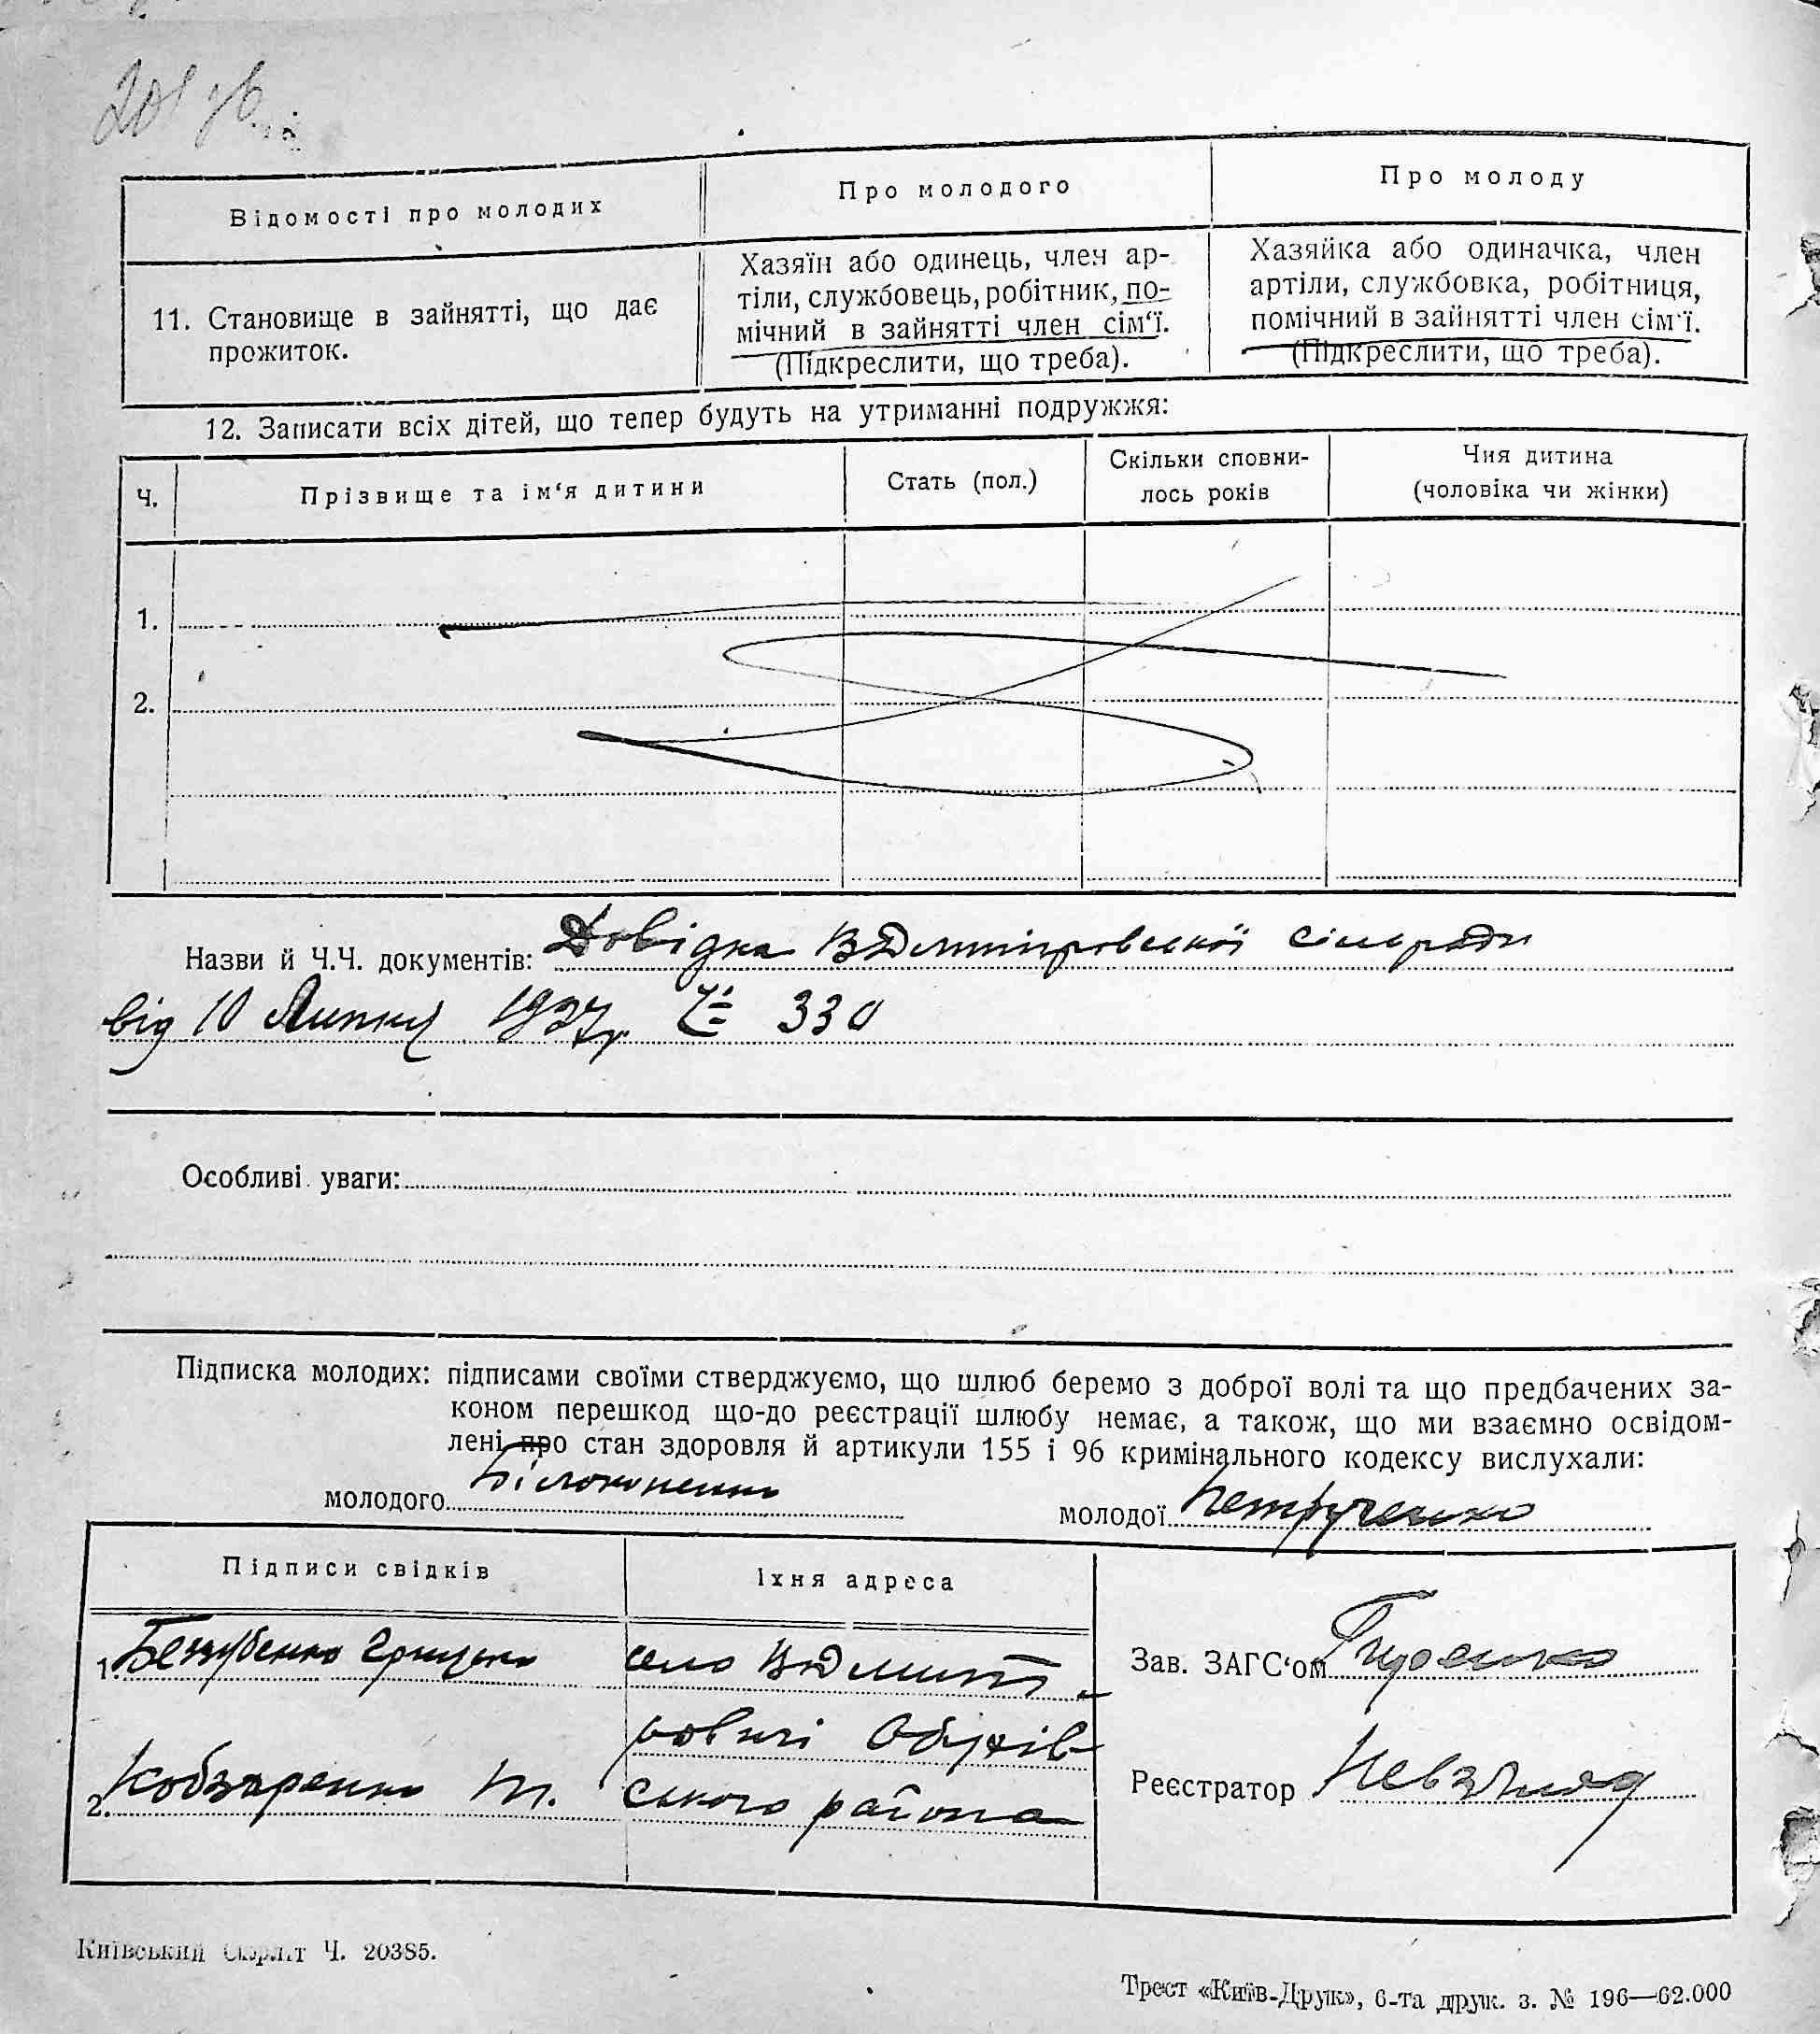 201 зв.
Відомості про молодих
Про молодого
Про молоду
11. Становище в зайнятті, що дає
прожиток.
Хазяїн або одинець, член ар-
тіли, службовець, робітник, по-
мічний в зайнятті член сім‘ї.
(Підкреслити, що треба).
Хазяйка або одиначка, член
артіли, службовка, робітниця,
помічний в зайнятті член сім‘ї.
(Підкреслити, що треба).
12. Записати всіх дітей, що тепер будуть на утриманні подружжя:
Ч.
Прізвище та ім‘я дитини
Стать (пол.)
Скільки сповни-
лось років
Чия дитина
(чоловіка чи жінки)
1.
2.
Назви й Ч.Ч. документів: Довідка ВДмитровської сільради
від 10 Липня 1927 р. Ч 330
Особливі уваги:
Підписка молодих: підписами своїми стверджуємо, що шлюб беремо з доброї волі та що предбачених за-
коном перешкод що-до реєстрації шлюбу немає, а також, що ми взаємно освідом-
лені про стан здоровля й артикули 155 і 96 кримінального кодексу вислухали:
молодого Білоконенко
молодої Петрученко
Підписи свідків
Їхня адреса
1. Беззубенко Грицько
село ВДмит-
ровичі Обухів-
2. Кобзаренко
ського района
Зав. ЗАГС‘ом
Реєстратор
Київський Окрліт Ч. 20385.
Трест «Київ-Друк», 6-та друк. з. № 196—62.000